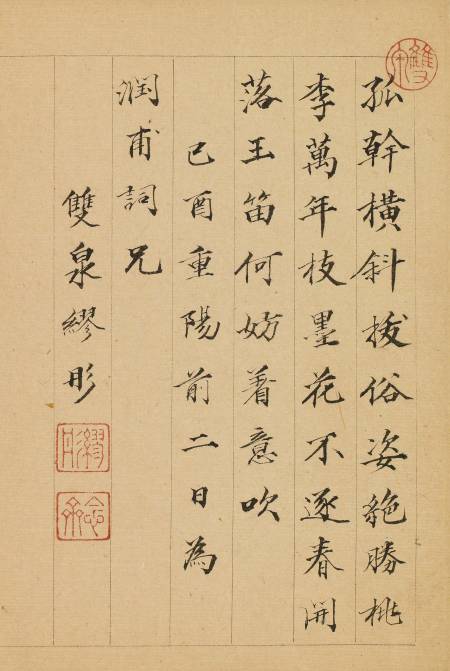 雙泉
孤幹橫斜拔俗姿絶勝桃
李萬年枝墨花不逐春開
落玉笛何妨着意吹
己酉重陽前二日為
潤甫詞兄
雙泉繆彤
繆彤
念齋